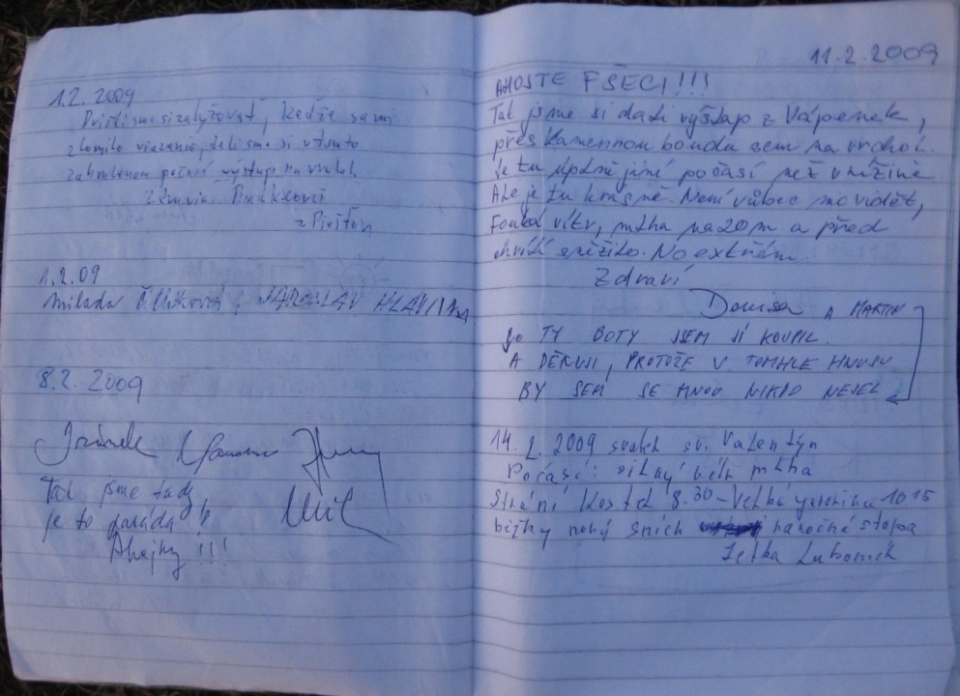 1.2. 2009
Prišli sme si zalyžovať, keďže sa mi
zlomilo viazanie, dali sme si v tomto
výstup na vrchol.
z Piešťan
1.2.09
Milada JAROSLAV
8.2. 2009
Tak jsme tady
je to paráda
Ahojky !!!
11.2.2009
AHOJTE FŠECI!!!
Tak jsme si dali výšlap z Vápenek,
přes Kamennou boudu sem na vrchol.
Je tu úplně jiné počasí než v nížině
Ale je tu krásně. Není vůbec nic vidět,
Fouká vítr, mlha na 20m a před
chvílí sněžilo. No extrém.
Zdraví
Denisa A MARTIN
Jo TY BOTY JSEM SI KOUPIL.
A DĚKUJI, PROTOŽE V TOMHLE HNUSU
BY SEM SE MNOU NIKDO NEŠEL
14. 2. 2009 svátek sv. Valentýn
Počasí: silný větr mlha
Strání Kostel 8.30 - Velká Javořina 10 15
běžky nový sních náročná stopa
Jetka Lubomír